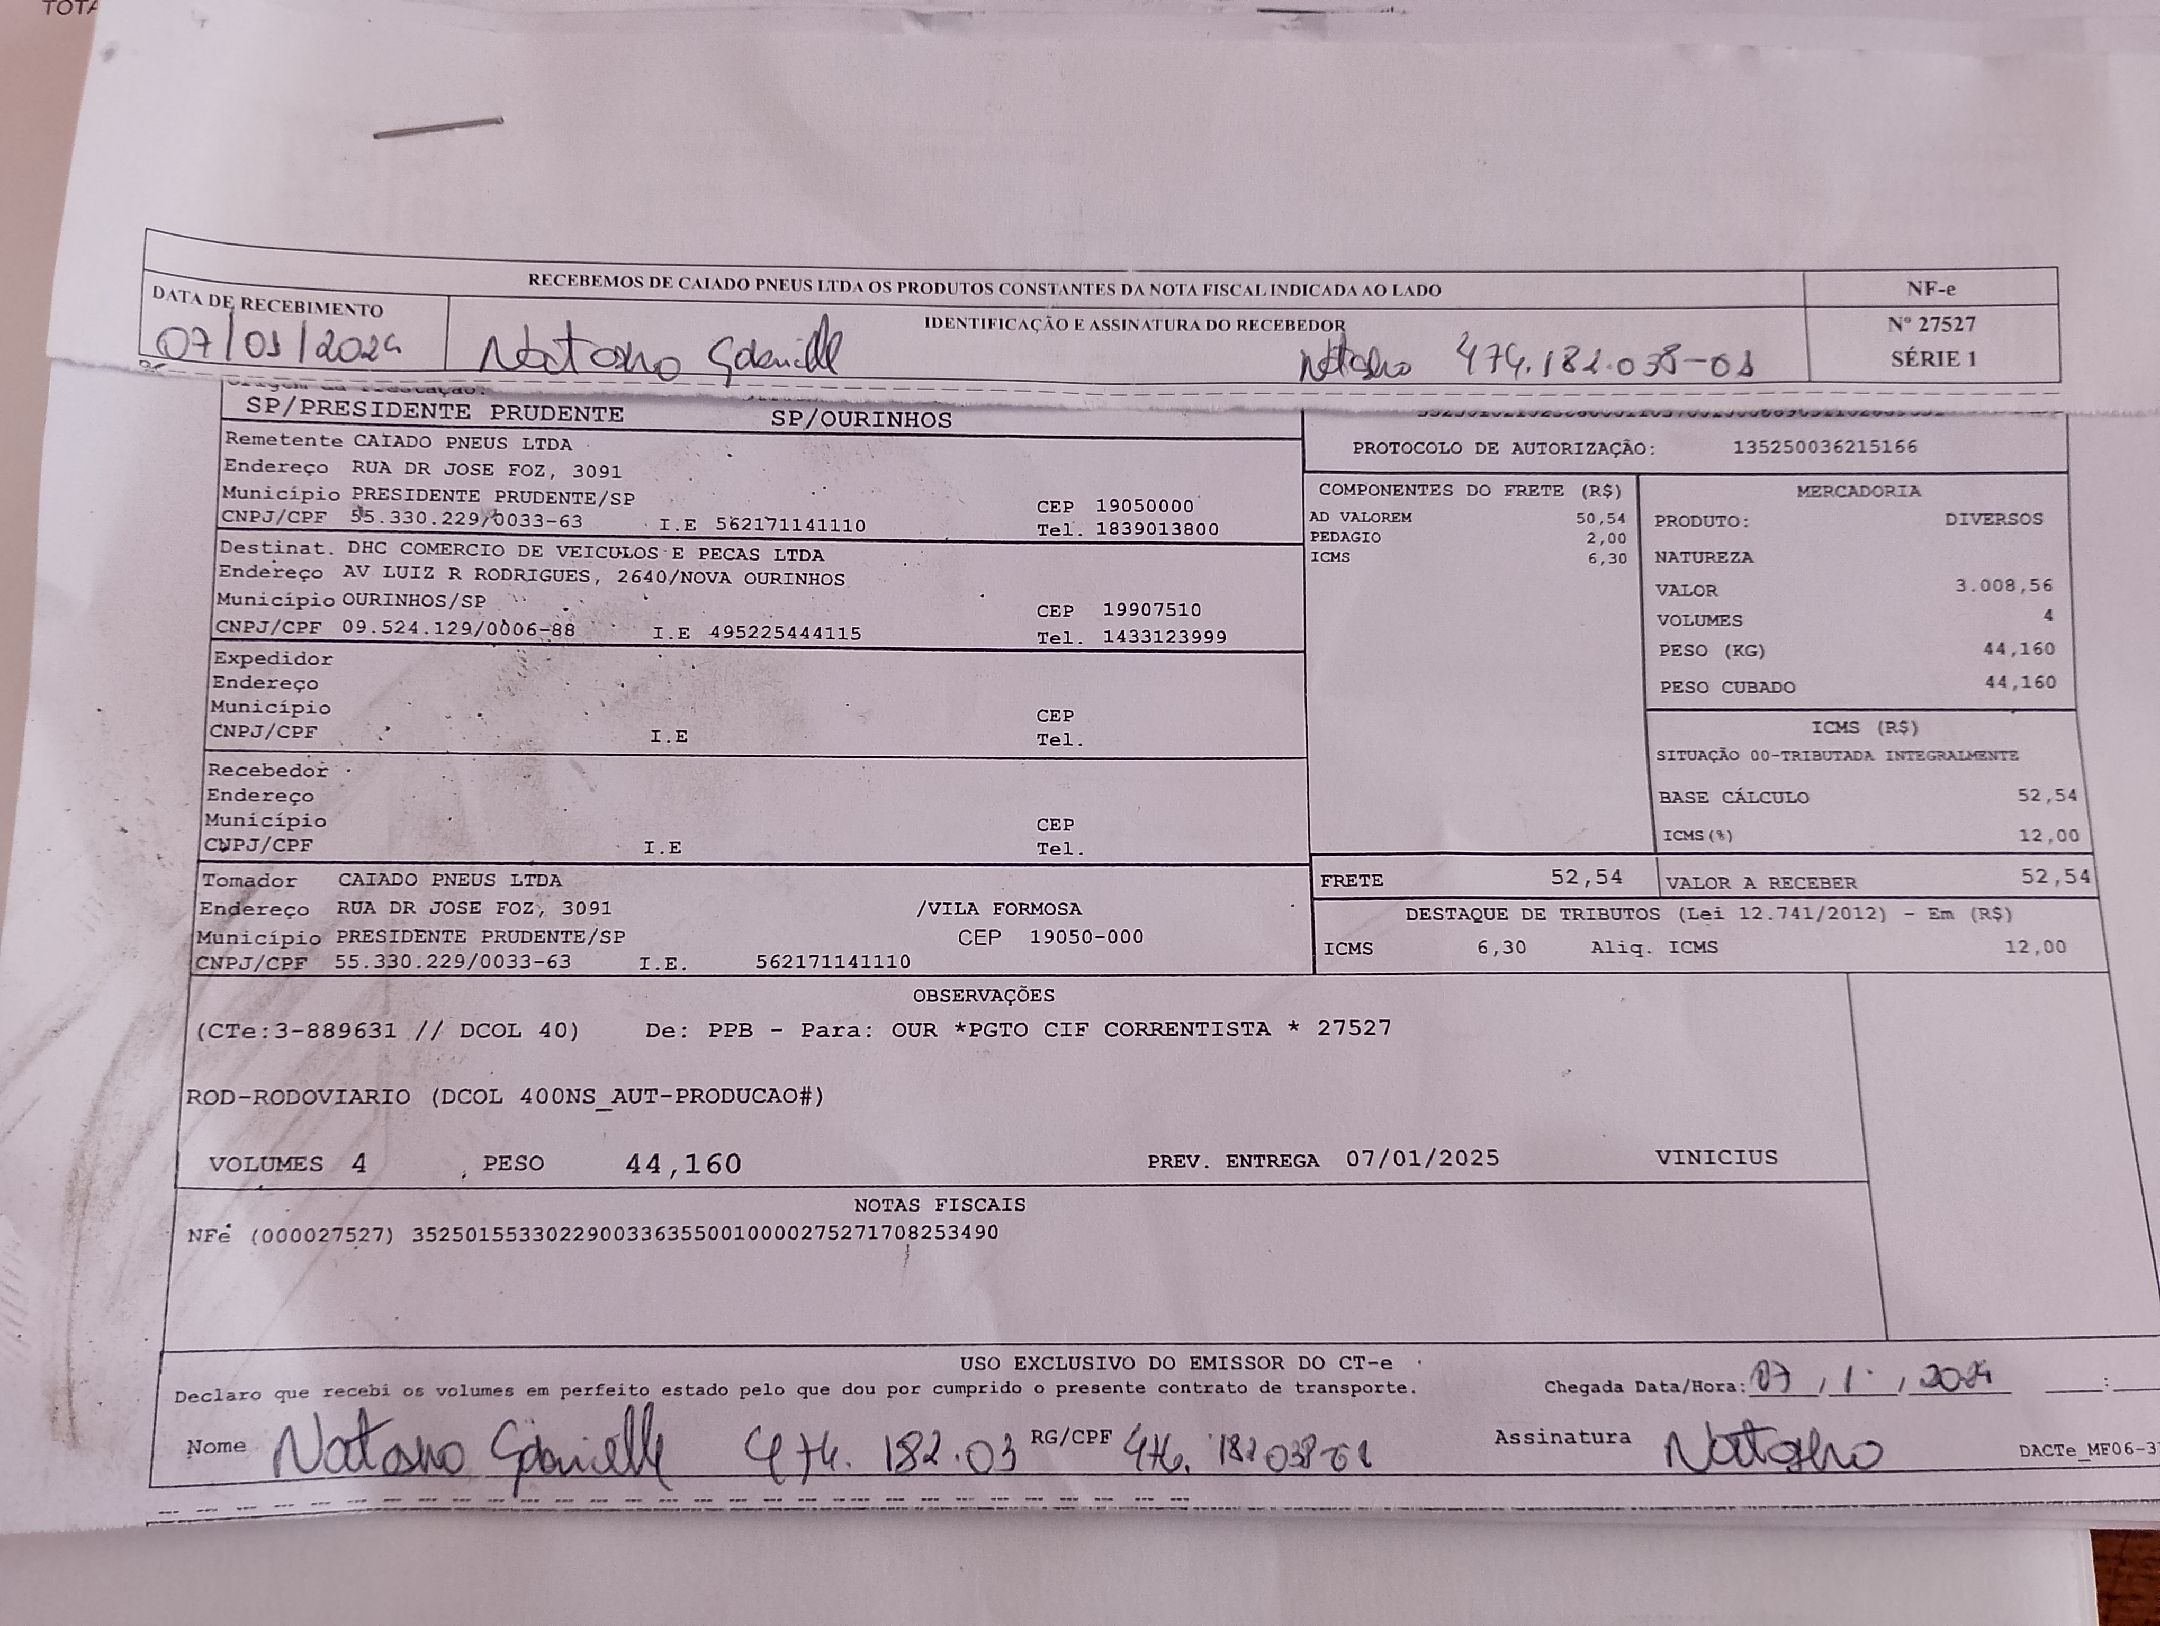 TOTA
RECEBEMOS DE CAIADO PNEUS LTDA OS PRODUTOS CONSTANTES DA NOTA FISCAL INDICADA AO LADO
NF-e
DATA DE RECEBIMENTO
IDENTIFICAÇÃO E ASSINATURA DO RECEBEDOR
Nº 27527
07/01/2024 Natasha Gabrielle Natasha 474.182.038-01
SÉRIE 1
Origem da Prestação:
SP/PRESIDENTE PRUDENTE SP/OURINHOS
Remetente CAIADO PNEUS LTDA
Endereço RUA DR JOSE FOZ, 3091
Município PRESIDENTE PRUDENTE/SP CEP 19050000
CNPJ/CPF 55.330.229/0033-63 I.E 562171141110 Tel. 1839013800
Destinat. DHC COMERCIO DE VEICULOS E PECAS LTDA
Endereço AV LUIZ R RODRIGUES, 2640/NOVA OURINHOS
Município OURINHOS/SP CEP 19907510
CNPJ/CPF 09.524.129/0006-88 I.E 495225444115 Tel. 1433123999
Expedidor
Endereço
Município CEP
CNPJ/CPF I.E Tel.
Recebedor
Endereço
Município CEP
CNPJ/CPF I.E Tel.
Tomador CAIADO PNEUS LTDA
Endereço RUA DR JOSE FOZ, 3091 /VILA FORMOSA
Município PRESIDENTE PRUDENTE/SP CEP 19050-000
CNPJ/CPF 55.330.229/0033-63 I.E. 562171141110
PROTOCOLO DE AUTORIZAÇÃO: 135250036215166
COMPONENTES DO FRETE (R$)
AD VALOREM 50,54
PEDAGIO 2,00
ICMS 6,30
MERCADORIA
PRODUTO: DIVERSOS
NATUREZA
VALOR 3.008,56
VOLUMES 4
PESO (KG) 44,160
PESO CUBADO 44,160
ICMS (R$)
SITUAÇÃO 00-TRIBUTADA INTEGRALMENTE
BASE CÁLCULO 52,54
ICMS(%) 12,00
FRETE 52,54 VALOR A RECEBER 52,54
DESTAQUE DE TRIBUTOS (Lei 12.741/2012) - Em (R$)
ICMS 6,30 Aliq. ICMS 12,00
OBSERVAÇÕES
(CTe:3-889631 // DCOL 40) De: PPB - Para: OUR *PGTO CIF CORRENTISTA * 27527
ROD-RODOVIARIO (DCOL 400NS_AUT-PRODUCAO#)
VOLUMES 4 PESO 44,160 PREV. ENTREGA 07/01/2025 VINICIUS
NOTAS FISCAIS
NFe (000027527) 35250155330229003363550010000275271708253490
USO EXCLUSIVO DO EMISSOR DO CT-e
Declaro que recebi os volumes em perfeito estado pelo que dou por cumprido o presente contrato de transporte. Chegada Data/Hora: 07/1/2024 __:__
Nome Natasha Gabrielle 474.182.03 RG/CPF 474.182038-01 Assinatura Natasha DACTe_MF06-37